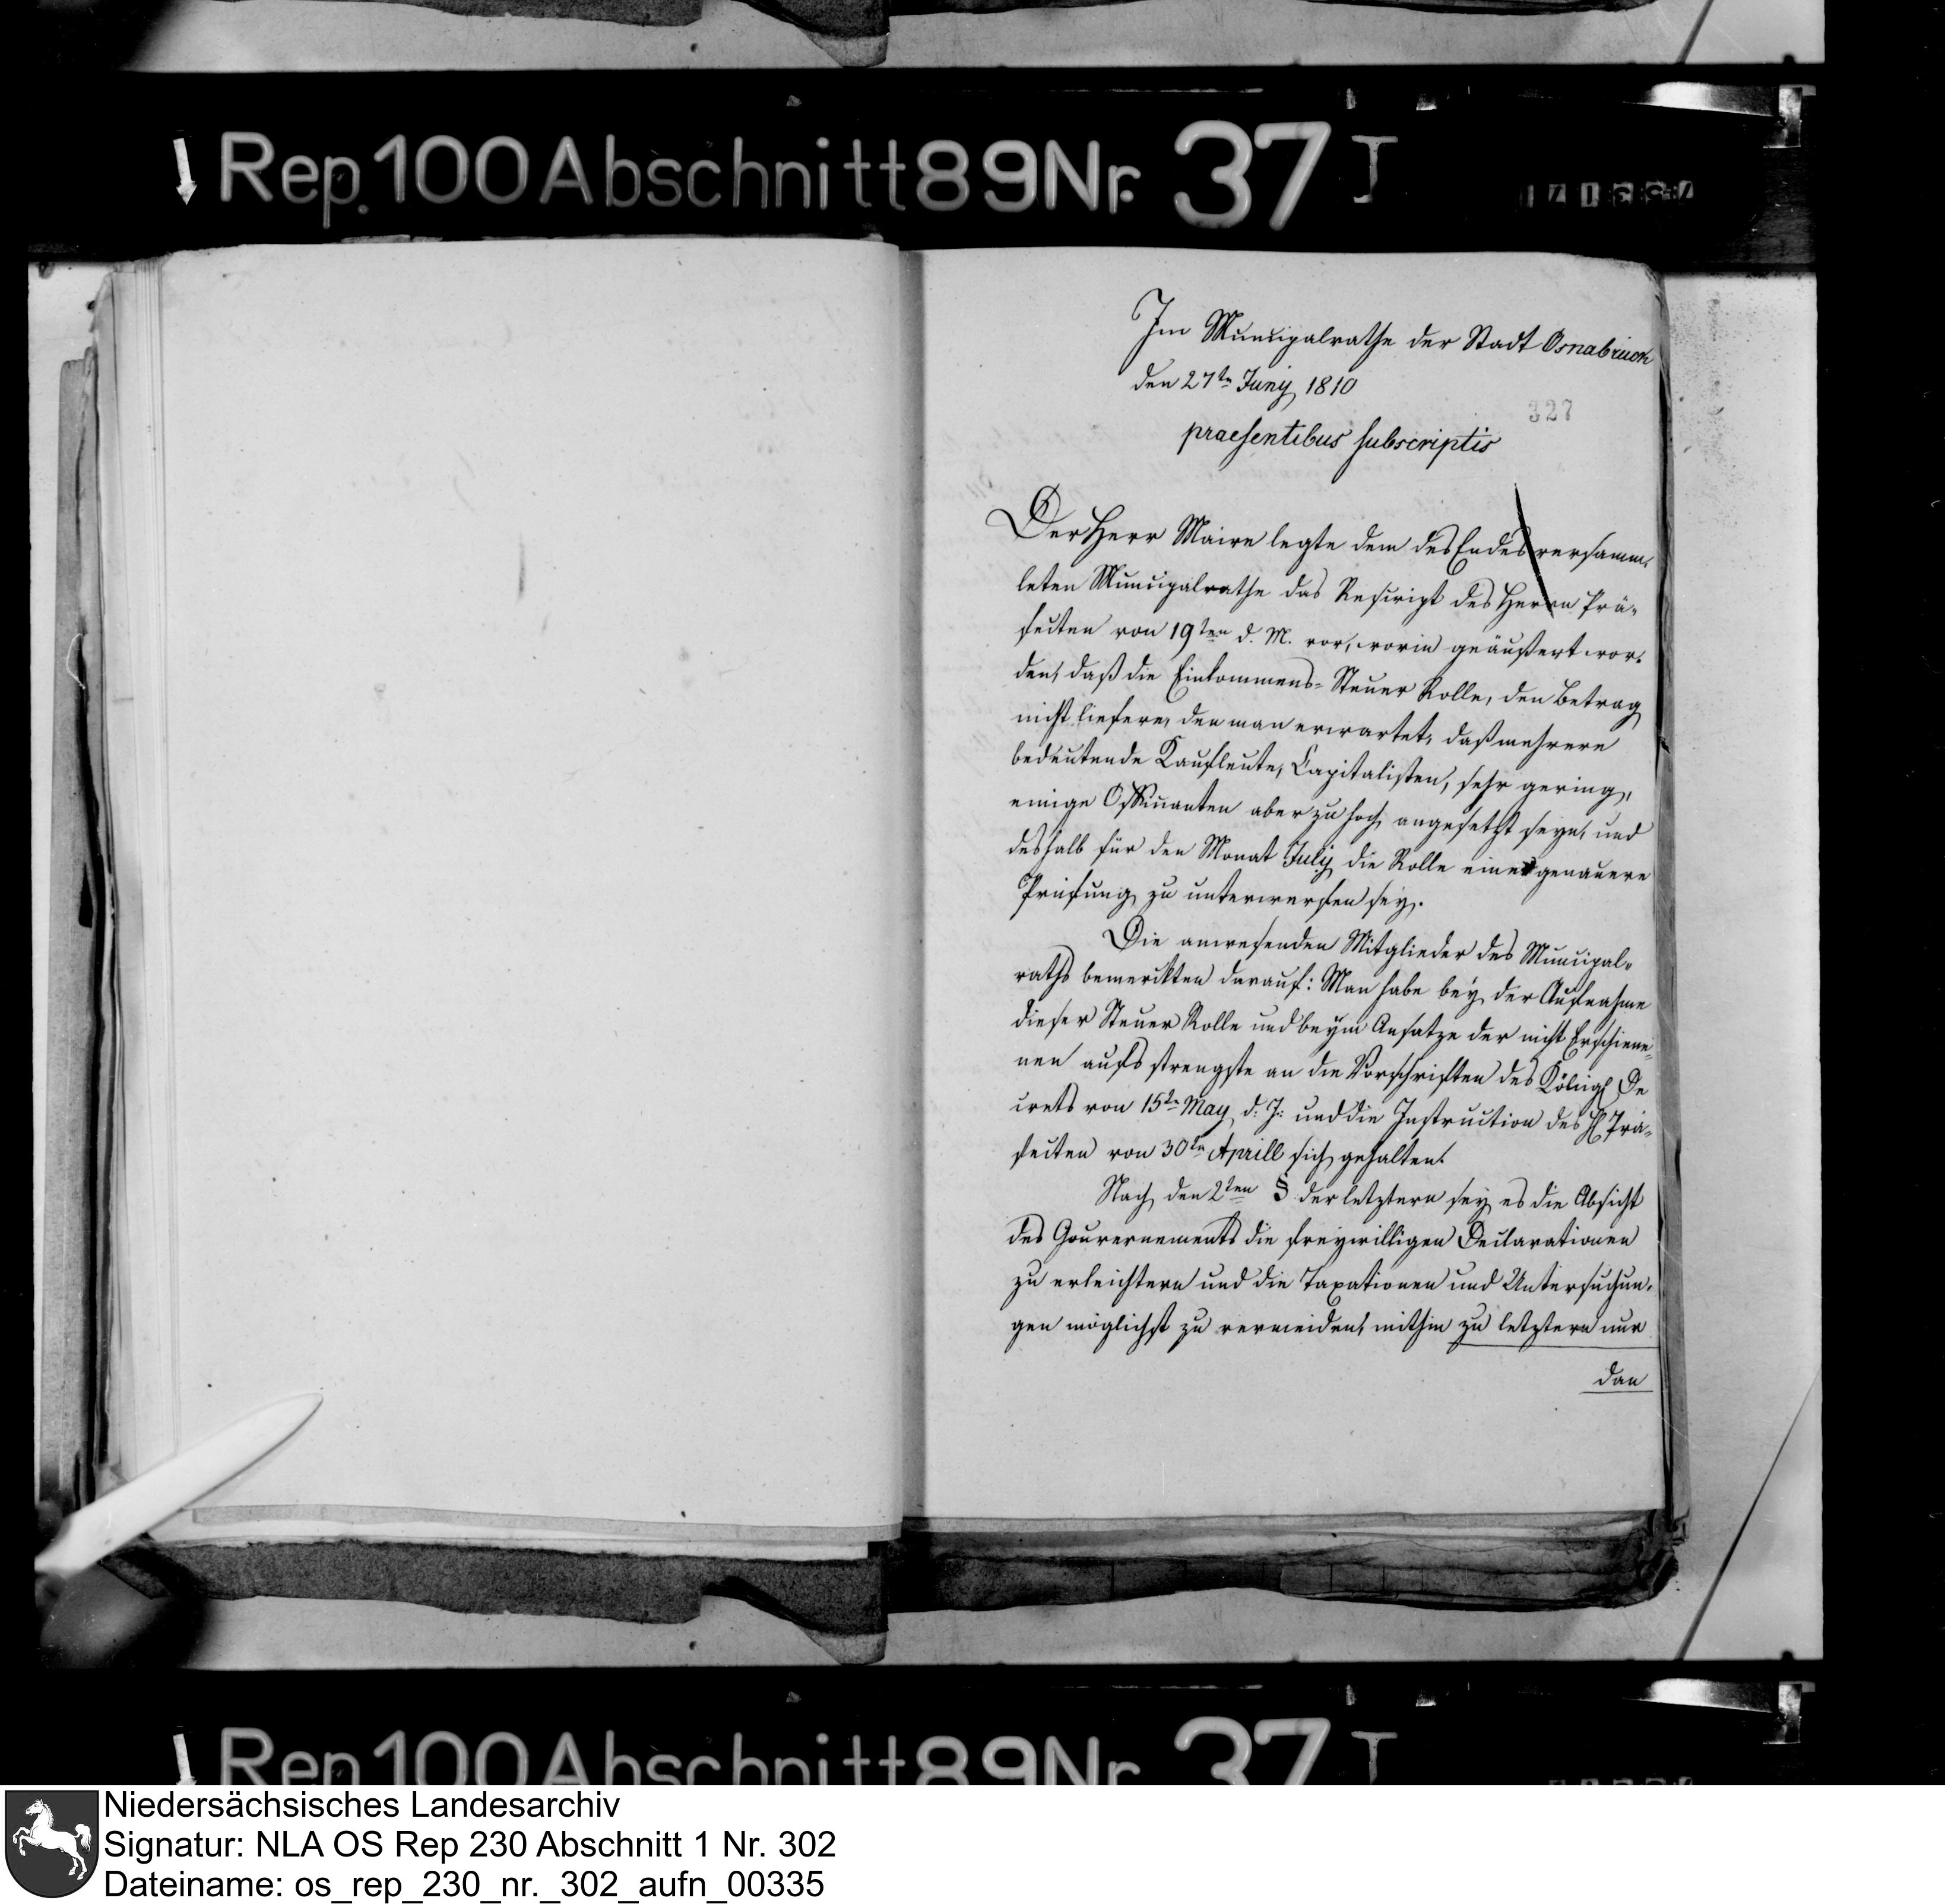 Rep. 100 Abschnitt 89 Nr. 37 I
Im Municipalrathe der Stadt Osnabrück
den 27ten Juny 1810
327
praesentibus subscriptis
Der Herr Maire legte dem des Endes versamm-
leten Municipalrathe das Rescript des Herrn Prä-
fecten von 19ten d. M. vor, worin geäußert wor-
den, daß die Einkommens-Steuer Rolle, den Betrag
nicht liefere, den man erwartet, daß mehrere
bedeutende Kaufleute, Capitalisten, sehr gering,
einige Officianten aber zu hoch angesetzt seyn, und
deshalb für den Monat July die Rolle eine genauere
Prüfung zu unterwerfen sey.
Die anwesenden Mitglieder des Municipal-
raths bemerkten darauf: Man habe bey der Aufnahme
dieser Steuer Rolle und beym Ansatze der nicht Erschiene-
nen aufs strengste an die Vorschriften des Königl De
crets von 15ten May d. J. und die Instruction des H Prä-
fecten von 30ten Aprill sich gehalten.
Nach den 2ten § der letztern sey es die Absicht
des Gouvernements die freywilligen Declarationen
zu erleichtern und die Taxationen und Untersuchun-
gen möglichst zu vermeiden, mithin zu letztern nur
dan
Rep. 100 Abschnitt 89 Nr. 37 I
Niedersächsisches Landesarchiv
Signatur: NLA OS Rep 230 Abschnitt 1 Nr. 302
Dateiname: os_rep_230_nr._302_aufn_00335